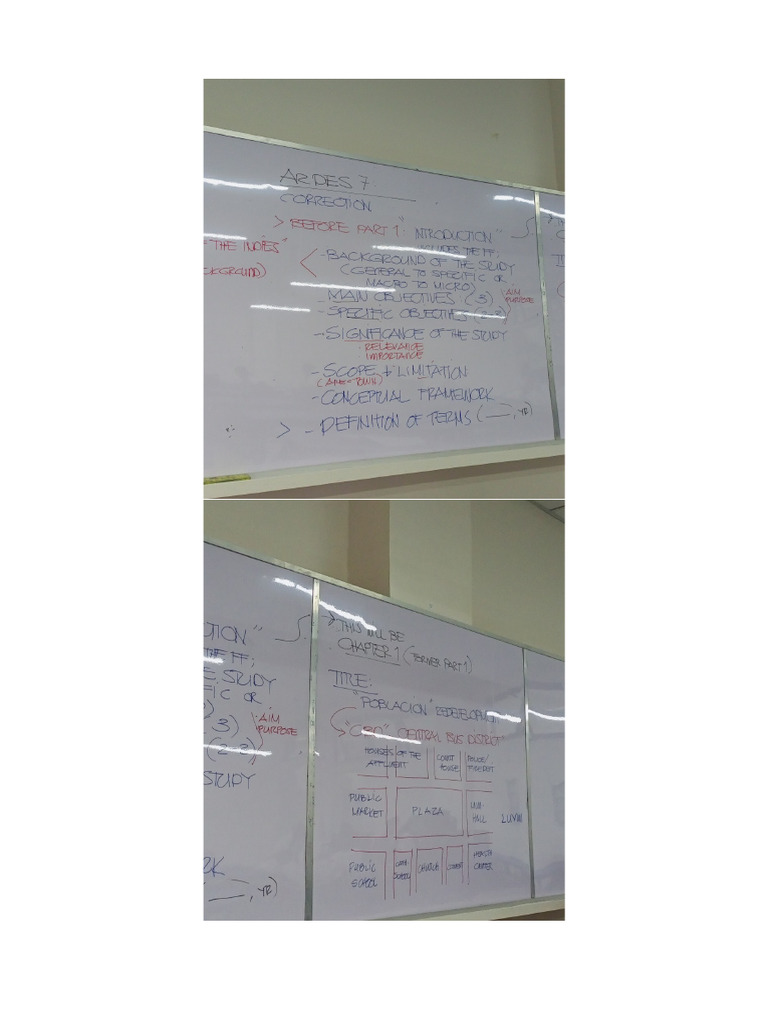 ARDES 7:
CORRECTION
> BEFORE PART 1 "INTRODUCTION"
INCLUDES THE FF;
"THE INDIES"
CKGROUND)
- BACKGROUND OF THE STUDY
(GENERAL TO SPECIFIC OR
MACRO TO MICRO)
- MAIN OBJECTIVES (3)
AIM
PURPOSE
- SPECIFIC OBJECTIVES (2-3)
- SIGNIFICANCE OF THE STUDY
· RELEVANCE
· IMPORTANCE
- SCOPE + LIMITATION
- CONCEPTUAL FRAMEWORK
> - DEFINITION OF TERMS (___, YR)
TION"
THE FF;
E STUDY
FIC OR
)
3)
AIM
PURPOSE
(2-3)
STUDY
RK
___, YR)
→ THIS WILL BE
CHAPTER 1 (FORMER PART 1)
TITLE:
"POBLACION" REDEVELOPMENT
"CBD" CENTRAL BUS DISTRICT
HOUSES OF THE
AFFLUENT
COURT
HOUSE
POLICE/
PUBLIC
MARKET
PLAZA
HALL
PUBLIC
SCHOOL
CHURCH
HEALTH
CENTER